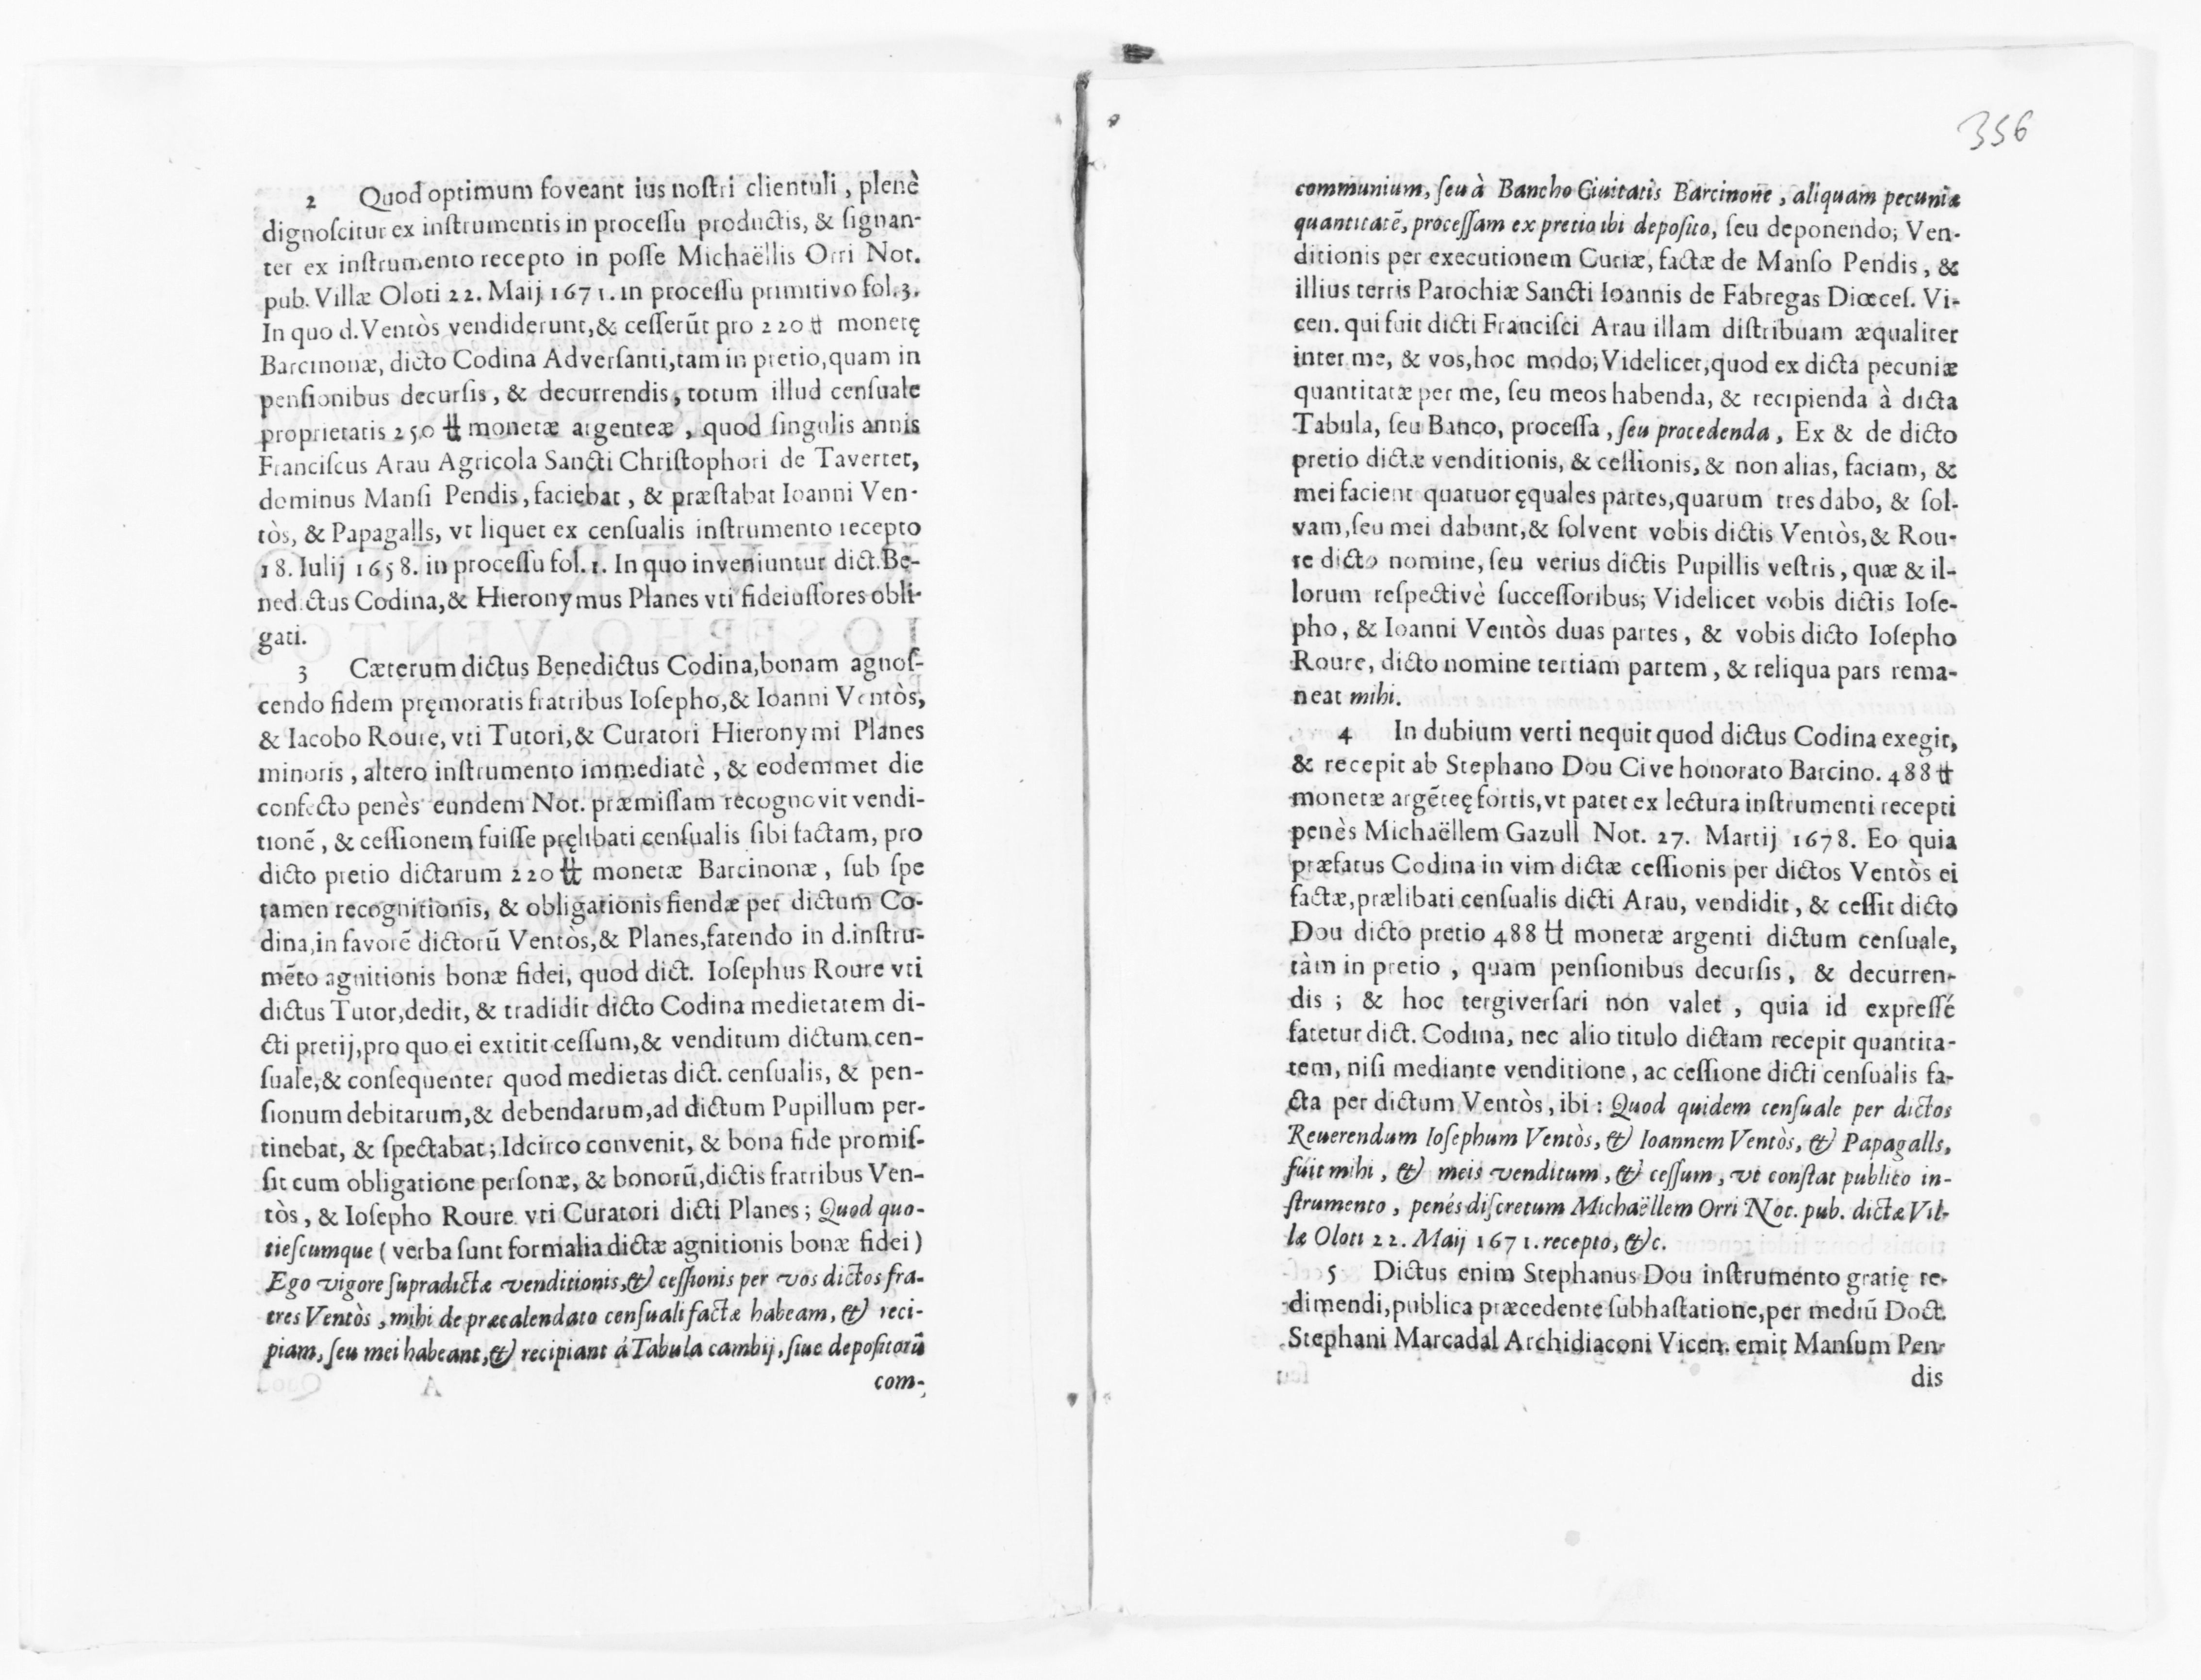 2 Quod optimum foveant ius noſtri clientuli, plenè
dignoſcitur ex inſtrumentis in proceſſu productis, & ſignan-
ter ex inſtrumento recepto in poſſe Michaëllis Orri Not.
pub. Villæ Oloti 22. Maij 1671. in proceſſu primitivo fol.3.
In quo d. Ventòs vendiderunt, & ceſſerūt pro 220 ℔ monetę
Barcinonæ, dicto Codina Adverſanti, tam in pretio, quam in
penſionibus decurſis, & decurrendis, totum illud cenſuale
proprietatis 250 ℔ monetæ argenteæ, quod ſingulis annis
Franciſcus Arau Agricola Sancti Chriſtophori de Tavertet,
dominus Manſi Pendis, faciebat, & præſtabat Ioanni Ven-
tòs, & Papagalls, vt liquet ex cenſualis inſtrumento recepto
18. Iulij 1658. in proceſſu fol. 1. In quo inveniuntur dict. Be-
nedictus Codina, & Hieronymus Planes vti fideiuſſores obli-
gati.
3 Cæterum dictus Benedictus Codina, bonam agnoſ-
cendo fidem pręmoratis fratribus Ioſepho, & Ioanni Ventòs,
& Iacobo Roure, vti Tutori, & Curatori Hieronymi Planes
minoris, altero inſtrumento immediatè, & eodemmet die
confecto penès eundem Not. præmiſſam recognovit vendi-
tionē, & ceſſionem fuiſſe pręlibati cenſualis ſibi factam, pro
dicto pretio dictarum 220 ℔ monetæ Barcinonæ, ſub ſpe
tamen recognitionis, & obligationis fiendæ per dictum Co-
dina, in favorē dictorū Ventòs, & Planes, fatendo in d. inſtru-
mēto agnitionis bonæ fidei, quod dict. Ioſephus Roure vti
dictus Tutor, dedit, & tradidit dicto Codina medietatem di-
cti pretij, pro quo ei extitit ceſſum, & venditum dictum cen-
ſuale, & conſequenter quod medietas dict. cenſualis, & pen-
ſionum debitarum, & debendarum, ad dictum Pupillum per-
tinebat, & ſpectabat; Idcirco convenit, & bona fide promiſ-
ſit cum obligatione perſonæ, & bonorū, dictis fratribus Ven-
tòs, & Ioſepho Roure vti Curatori dicti Planes; Quod quo-
tieſcumque ( verba ſunt formalia dictæ agnitionis bonæ fidei )
Ego vigore ſupradictæ venditionis, & ceſſionis per vos dictos fra-
tres Ventòs, mihi de præcalendato cenſuali factæ habeam, & reci-
piam, ſeu mei habeant, & recipiant á Tabula cambij, ſiue depoſitorū
com-
356
communium, ſeu à Bancho Ciuitatis Barcinone, aliquam pecuniæ
quantitatē, proceſſam ex pretio ibi depoſito, ſeu deponendo; Ven-
ditionis per executionem Curiæ, factæ de Manſo Pendis, &
illius terris Parochiæ Sancti Ioannis de Fabregas Diœceſ. Vi-
cen. qui fuit dicti Franciſci Arau illam diſtribuam æqualiter
inter me, & vos, hoc modo; Videlicet, quod ex dicta pecuniæ
quantitatæ per me, ſeu meos habenda, & recipienda à dicta
Tabula, ſeu Banco, proceſſa, ſeu procedenda, Ex & de dicto
pretio dictæ venditionis, & ceſſionis, & non alias, faciam, &
mei facient quatuor ęquales partes, quarum tres dabo, & ſol-
vam, ſeu mei dabunt, & ſolvent vobis dictis Ventòs, & Rou-
re dicto nomine, ſeu verius dictis Pupillis veſtris, quæ & il-
lorum reſpectivè ſucceſſoribus; Videlicet vobis dictis Ioſe-
pho, & Ioanni Ventòs duas partes, & vobis dicto Ioſepho
Roure, dicto nomine tertiam partem, & reliqua pars rema-
neat mihi.
4 In dubium verti nequit quod dictus Codina exegit,
& recepit ab Stephano Dou Cive honorato Barcino. 488 ℔
monetæ argēteę fortis, vt patet ex lectura inſtrumenti recepti
penès Michaëllem Gazull Not. 27. Martij 1678. Eo quia
præfatus Codina in vim dictæ ceſſionis per dictos Ventòs ei
factæ, prælibati cenſualis dicti Arau, vendidit, & ceſſit dicto
Dou dicto pretio 488 ℔ monetæ argenti dictum cenſuale,
tàm in pretio, quam penſionibus decurſis, & decurren-
dis; & hoc tergiverſari non valet, quia id expreſſé
fatetur dict. Codina, nec alio titulo dictam recepit quantita-
tem, niſi mediante venditione, ac ceſſione dicti cenſualis fa-
cta per dictum Ventòs, ibi: Quod quidem cenſuale per dictos
Reuerendum Ioſephum Ventòs, & Ioannem Ventòs, & Papagalls,
fuit mihi, & meis venditum, & ceſſum, vt conſtat publico in-
ſtrumento, penés diſcretum Michaëllem Orri Not. pub. dictæ Vil-
læ Oloti 22. Maij 1671. recepto, &c.
5 Dictus enim Stephanus Dou inſtrumento gratię re-
dimendi, publica præcedente ſubhaſtatione, per mediū Doct.
Stephani Marcadal Archidiaconi Vicen. emit Manſum Pen-
dis